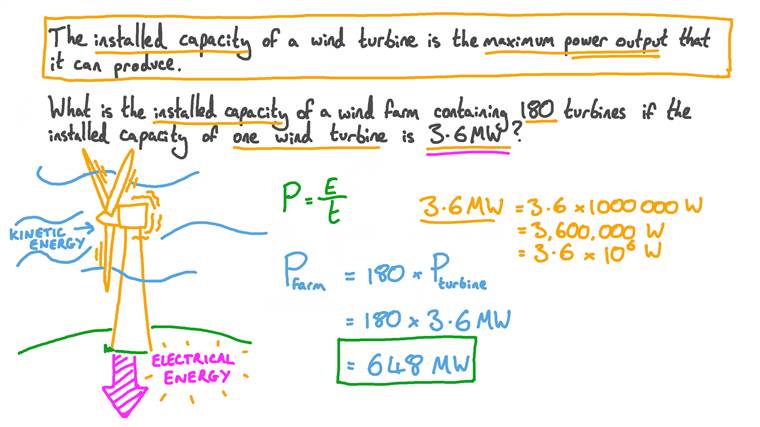 The installed capacity of a wind turbine is the maximum power output that
it can produce.
What is the installed capacity of a wind farm containing 180 turbines if the
installed capacity of one wind turbine is 3.6MW?
KINETIC
ENERGY
ELECTRICAL
ENERGY
P = E/t
P Farm = 180 × P turbine
= 180 × 3.6 MW
= 648 MW
3.6 MW = 3.6 × 1000 000 W
= 3,600,000 W
= 3.6 × 10⁶ W